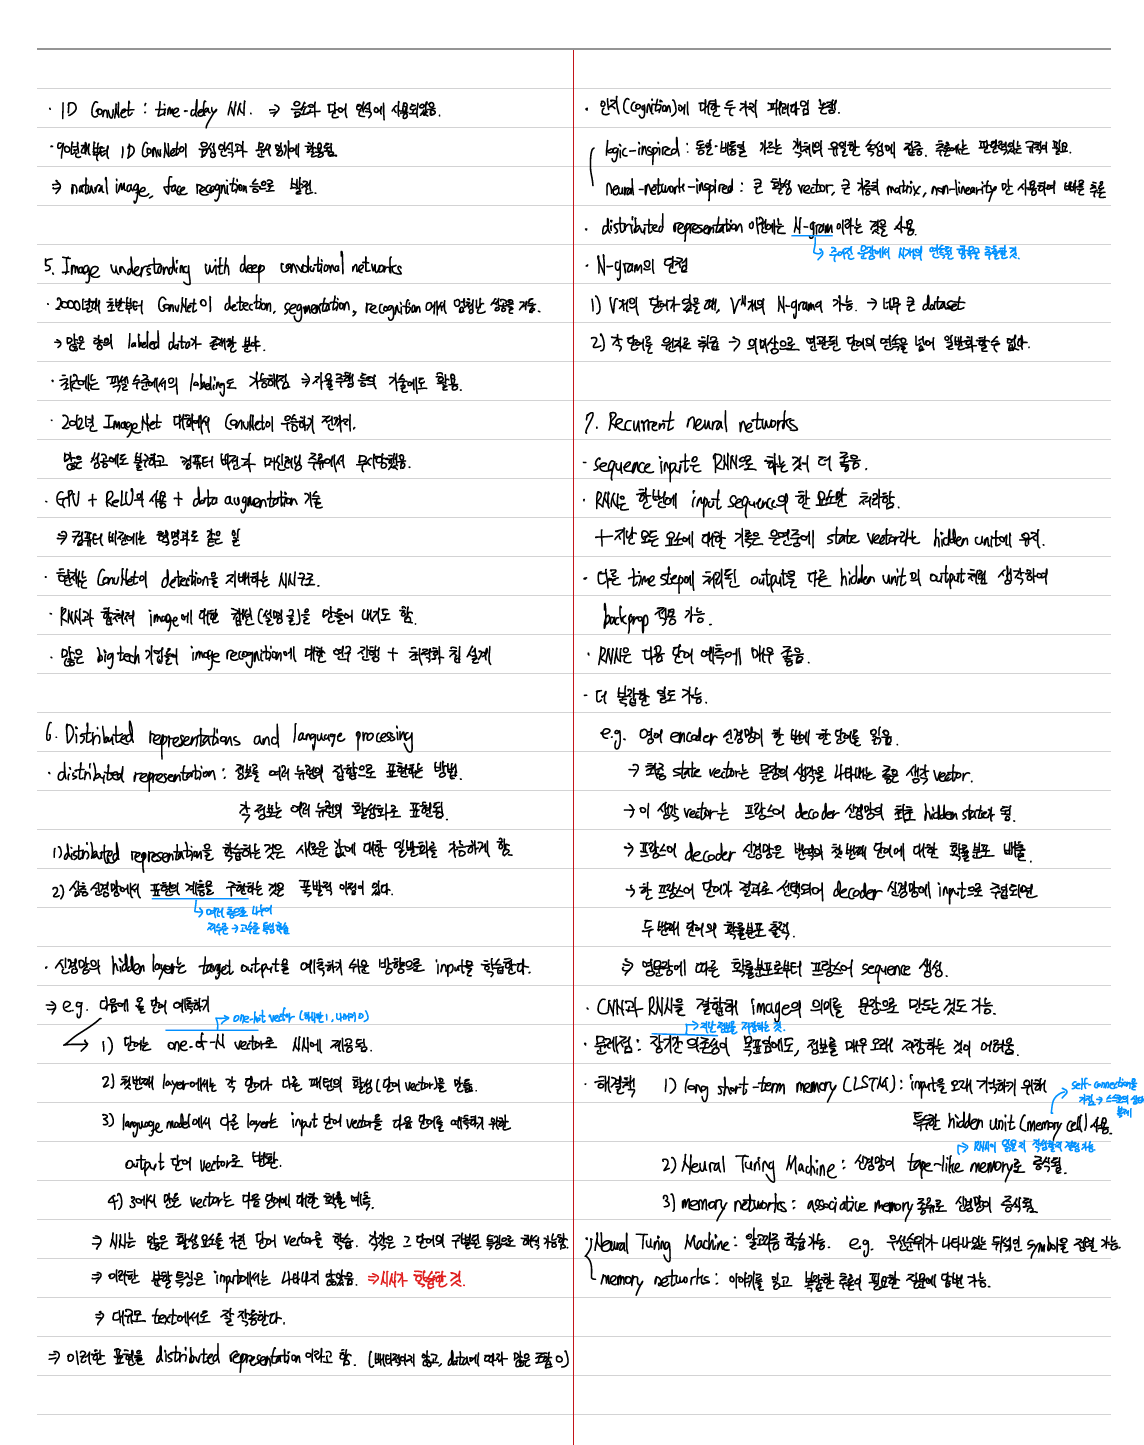 · 1D ConvNet : time-delay NN. ⇒ 음소와 단어 인식에 사용되었음.
· 90년대부터 1D ConvNet이 음성인식과 문서 읽기에 활용됨.
⇒ natural image, face recognition 등으로 발전.
5. Image understanding with deep convolutional networks
· 2000년대 초반부터 ConvNet이 detection, segmentation, recognition에서 엄청난 성공을 거둠.
→ 많은 양의 labeled data가 존재한 분야.
· 최근에는 픽셀 수준에서의 labeling도 가능해짐 ⇒ 자율주행 등의 기술에도 활용.
· 2012년 ImageNet 대회에서 ConvNet이 우승하기 전까지,
많은 성공에도 불구하고 컴퓨터 비전과 머신러닝 주류에서 무시당했음.
· GPU + ReLU의 사용 + data augmentation 기술
⇒ 컴퓨터 비전에는 혁명과도 같은 일
· 현재는 ConvNet이 detection을 지배하는 NN구조.
· RNN과 합쳐져 image에 대한 캡션(설명 글)을 만들어 내기도 함.
· 많은 big tech 기업들이 image recognition에 대한 연구 진행 + 최적화 칩 설계
6. Distributed representations and language processing
· distributed representation : 정보를 여러 뉴런의 집합으로 표현하는 방법.
각 정보는 여러 뉴런의 활성화로 표현됨.
1) distributed representation을 학습하는 것은 새로운 값에 대한 일반화를 가능하게 함.
2) 심층 신경망에서 표현의 계층을 구현하는 것은 폭발적 이점이 있다.
↳ 여러 층으로 나누어
저수준 → 고수준 특징 학습
· 신경망의 hidden layer는 target output을 예측하기 쉬운 방향으로 input을 학습한다.
⇒ e.g. 다음에 올 단어 예측하기
→ one-hot vector (하나만 1, 나머지 0)
→ 1) 단어는 one-of-N vector로 NN에 제공됨.
2) 첫번째 layer에서는 각 단어가 다른 패턴의 활성(단어 vector)을 만듦.
3) language model에서 다른 layer는 input 단어 vector를 다음 단어를 예측하기 위한
output 단어 vector로 변환.
4) 3에서 만든 vector는 다음 단어에 대한 확률 예측.
⇒ NN는 많은 활성 요소를 가진 단어 vector를 학습. 각각은 그 단어의 구별된 특징으로 해석 가능함.
⇒ 이러한 분할 특징은 input에서는 나타나지 않았음. ⇒ NN가 학습한 것.
⇒ 대규모 text에서도 잘 작동한다.
⇒ 이러한 표현을 distributed representation이라고 함. (배타적이지 않고, data에 따라 많은 조합 O)
· 인지(cognition)에 대한 두 가지 패러다임 논쟁.
logic-inspired : 동일·비동일 기호는 객체의 유일한 속성에 집중. 추론에는 판별력있는 규칙이 필요.
neural-network-inspired : 큰 활성 vector, 큰 가중치 matrix, non-linearity만 사용하여 빠른 추론
· distributed representation 이전에는 N-gram이라는 것을 사용.
↳ 주어진 문장에서 N개의 연속된 항목을 추출한 것.
· N-gram의 단점
1) V개의 단어가 있을 때, Vᴺ개의 N-grams 가능. → 너무 큰 dataset
2) 각 단어를 원자로 취급 → 의미상으로 연관된 단어의 연속을 넘어 일반화할 수 없다.
7. Recurrent neural networks
· sequence input은 RNN으로 하는 것이 더 좋음.
· RNN은 한번에 input sequence의 한 요소만 처리함.
+ 지난 모든 요소에 대한 기록은 은연중에 state vector라는 hidden unit에 유지.
· 다른 time step에 처리된 output을 다른 hidden unit의 output처럼 생각하여
backprop 적용 가능.
· RNN은 다음 단어 예측에 매우 좋음.
· 더 복잡한 일도 가능.
e.g. 영어 encoder 신경망이 한 번에 한 단어를 읽음.
→ 최종 state vector는 문장의 생각을 나타내는 좋은 생각 vector.
→ 이 생각 vector는 프랑스어 decoder 신경망의 최초 hidden state가 됨.
→ 프랑스어 decoder 신경망은 번역의 첫 번째 단어에 대한 확률분포 배출.
→ 한 프랑스어 단어가 결과로 선택되어 decoder 신경망에 input으로 주입되면
두 번째 단어의 확률분포 출력.
⇒ 영문장에 따른 확률분포로부터 프랑스어 sequence 생성.
· CNN과 RNN을 결합해 image의 의미를 문장으로 만드는 것도 가능.
→ 지난 정보를 저장하는 것.
· 문제점 : 장기간 의존성이 목표임에도, 정보를 매우 오래 저장하는 것이 어려움.
· 해결책 1) long short-term memory (LSTM) : input을 오래 기억하기 위해
특수한 hidden unit (memory cell) 사용.
self-connection을
→ RNN이 읽은지 적합할지 결정 가능
2) Neural Turing Machine : 신경망이 tape-like memory로 증식됨.
3) memory networks : associative memory 종류로 신경망이 증식됨.
· Neural Turing Machine : 알고리즘 학습가능. e.g. 우선순위가 나타나있는 뒤섞인 symbol을 정렬 가능.
memory networks : 이야기를 읽고 복잡한 추론이 필요한 질문에 답변 가능.